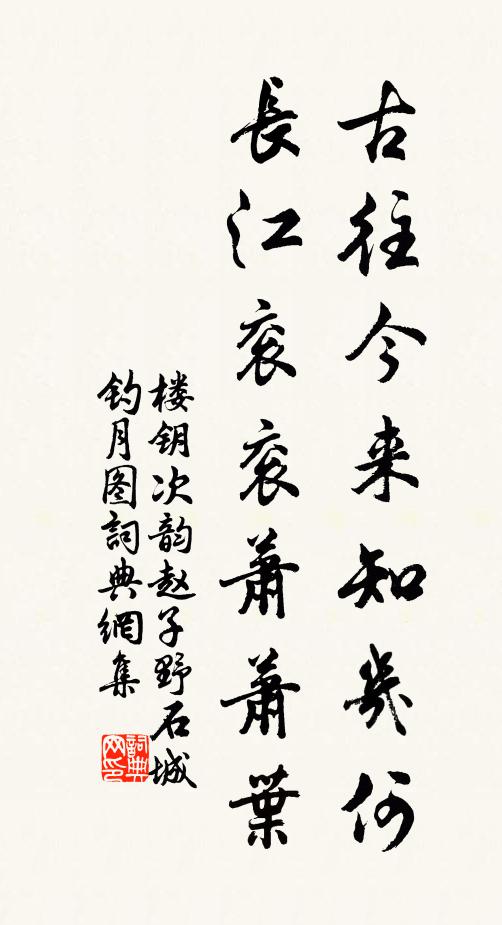 古往今来知幾何
長江衮衮蕭蕭葉
楼钥次韵赵子野石城
钓月图詞典網集
詞典网印